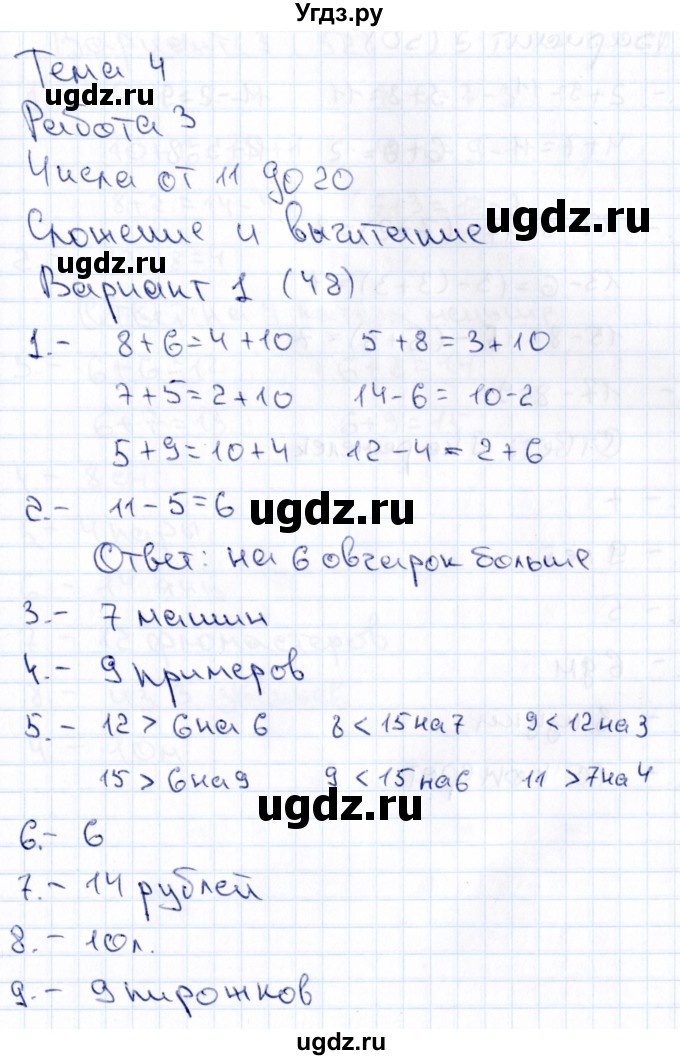 Угдз.ру
Тема 4
ugdz.ru
Работа 3
Числа от 11 до 20
ugdz.ru
Сложение и вычитание
ugdz.ru
Вариант 1 (48)
1.- 8+6=4+10 5+8=3+10
7+5=2+10 14-6=10-2
5+9=10+4 12-4=2+6
2.- 11-5=6
ugdz.ru
Ответ: на 6 овчарок больше
3.- 7 машин
4.- 9 примеров
5.- 12 > 6 на 6 8 < 15 на 7 9 < 12 на 3
15 > 6 на 9 9 < 15 на 6 11 > 7 на 4
ugdz.ru
6.- 6
7.- 14 рублей
8.- 10л.
9.- 9 пирожков
ugdz.ru